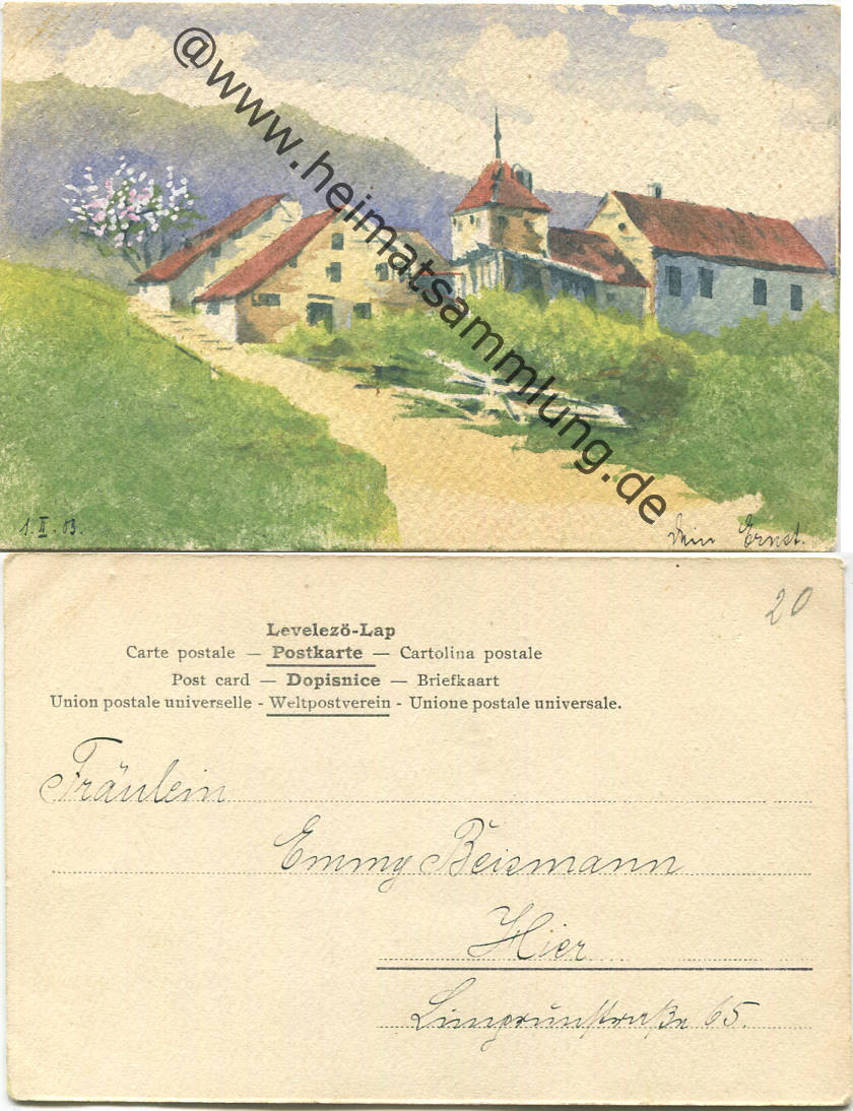 @www.heimatsammlung.de
1. II. 03.
Dein Ernst.
20
Levelezö-Lap
Carte postale — Postkarte — Cartolina postale
Post card — Dopisnice — Briefkaart
Union postale universelle - Weltpostverein - Unione postale universale.
Fräulein
Emmy Beismann
Hier
65.